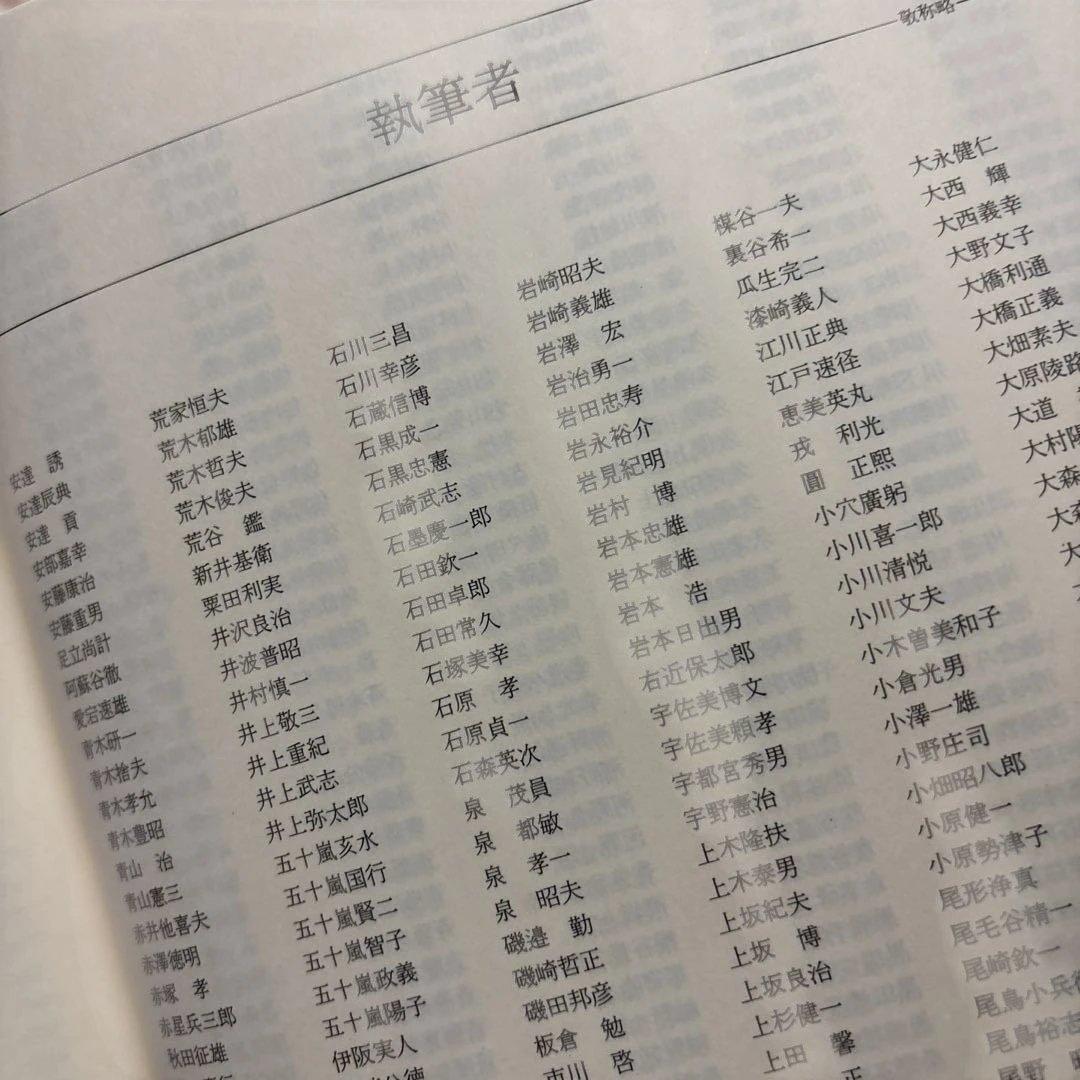 敬称略
執筆者
安達　誘
安達辰典
安達　貢
安部嘉幸
安藤康治
安藤重男
足立尚計
阿蘇谷徹
愛宕速雄
青木研一
青木捨夫
青木孝允
青木豊昭
青山　治
青山憲三
赤井他喜夫
赤澤徳明
赤塚　孝
赤星兵三郎
秋田征雄
荒家恒夫
荒木郁雄
荒木哲夫
荒木俊夫
荒谷　鑑
新井基衛
粟田利実
井沢良治
井波普昭
井村慎一
井上敬三
井上重紀
井上武志
井上弥太郎
五十嵐亥水
五十嵐国行
五十嵐賢二
五十嵐智子
五十嵐政義
五十嵐陽子
伊阪実人
石川三昌
石川幸彦
石蔵信博
石黒成一
石黒忠憲
石崎武志
石墨慶一郎
石田欽一
石田卓郎
石田常久
石塚美幸
石原　孝
石原貞一
石森英次
泉　茂員
泉　都敏
泉　孝一
泉　昭夫
磯邉　勤
磯崎哲正
磯田邦彦
板倉　勉
市川　啓
岩崎昭夫
岩崎義雄
岩澤　宏
岩治勇一
岩田忠寿
岩永裕介
岩見紀明
岩村　博
岩本忠雄
岩本憲雄
岩本　浩
岩本日出男
右近保太郎
宇佐美博文
宇佐美頼孝
宇都宮秀男
宇野憲治
上木隆扶
上木泰男
上坂紀夫
上坂　博
上坂良治
上杉健一
上田　馨
楳谷一夫
裏谷希一
瓜生完二
漆崎義人
江川正典
江戸速径
恵美英丸
戎　利光
圓　正熙
小穴廣躬
小川喜一郎
小川清悦
小川文夫
小木曽美和子
小倉光男
小澤一雄
小野庄司
小畑昭八郎
小原健一
小原勢津子
尾形浄真
尾毛谷精一
尾崎欽一
尾鳥小兵
尾鳥裕志
尾野
大永健仁
大西　輝
大西義幸
大野文子
大橋利通
大橋正義
大畑素夫
大原陵路
大道
大村陽
大森
大森
大